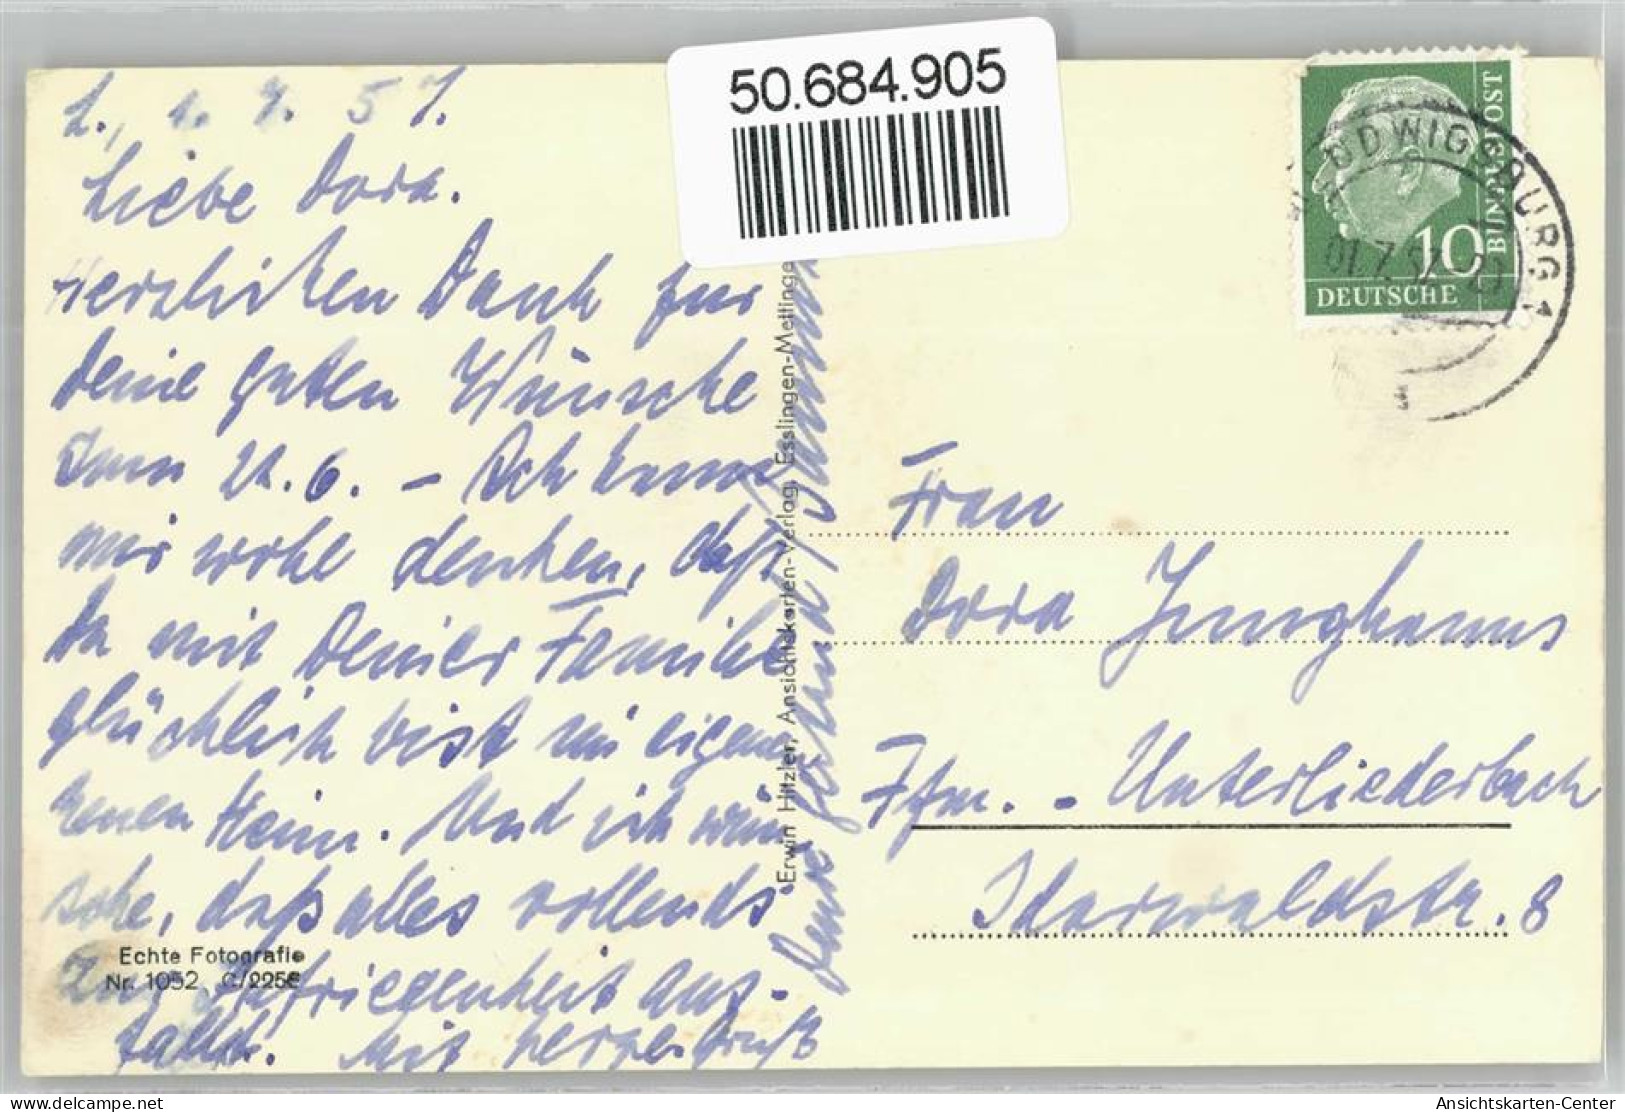 50.684.905
L., 1. 7. 57.
Liebe Dora.
Herzlichen Dank für
Deine guten Wünsche
zum 21. 6. - Ich kann
mir wohl denken, daß
Du mit Deiner Familie
glücklich bist im eigenen
Heim. Und ich wün
sche, daß alles vollends
zur Zufriedenheit aus-
fällt. Mit herzl. Gruß
Deine
Echte Fotografie
Nr. 1052 C/2256
Erwin Hitzler, Ansichtskarten-Verlag, Esslingen-Mettinge
LUDWIGSBURG
01.7.57
10
DEUTSCHE
BUNDESPOST
Frau
Dora Junghanns
Ffm. - Unterliederbach
8
Ansichtskarten-Center